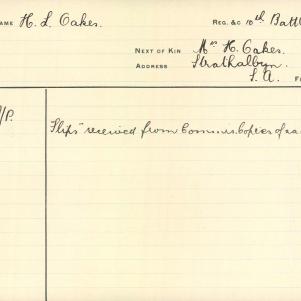 NAME H. L. Oakes. REG. &C 10th Batt
NEXT OF KIN Mrs H. Oakes.
ADDRESS Strathalbyn.
S. A.
/P. "Slips" received from Commun. Copies of